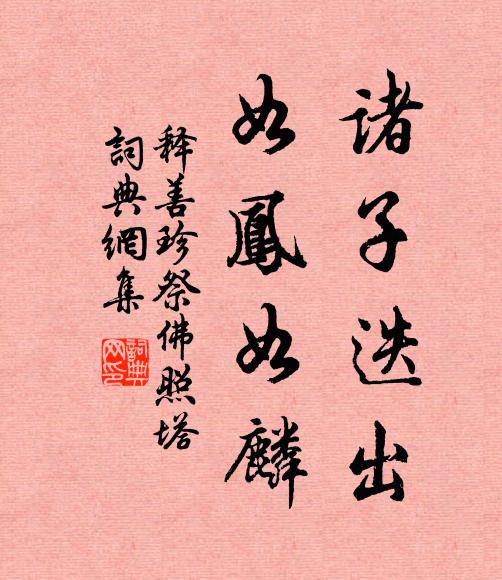 諸子迭出
如鳳如麟
释善珍祭佛照塔
詞典網集
詞典網印